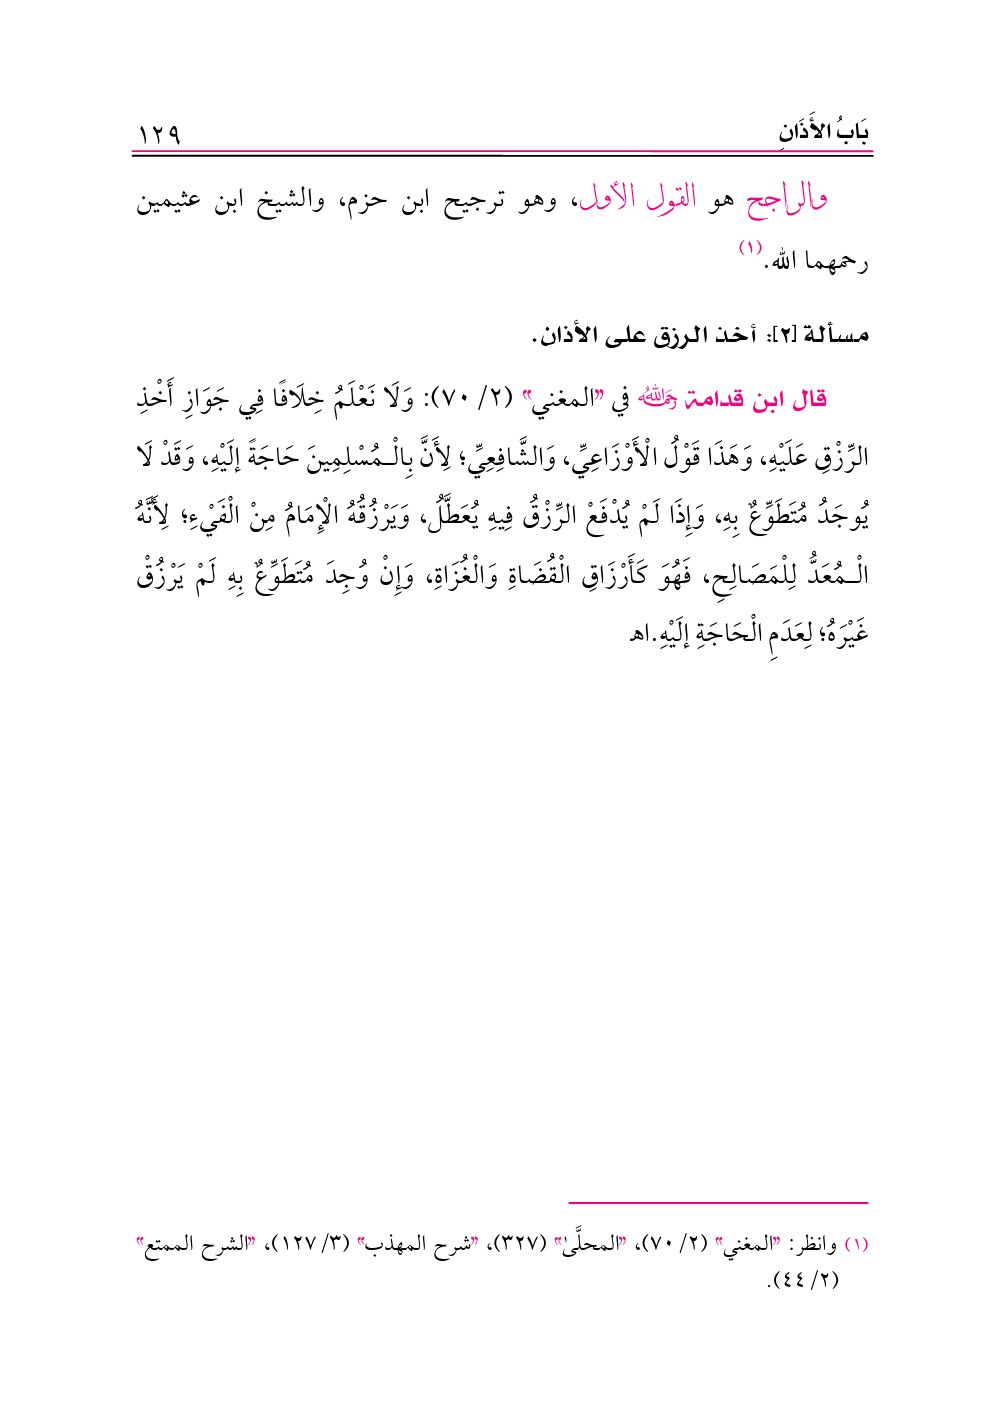 بَابُ الأَذَانِ ١٢٩
والراجح هو القول الأول، وهو ترجيح ابن حزم، والشيخ ابن عثيمين
رحمهما الله.(١)
مسألة [٢]: أخذ الرزق على الأذان.
قال ابن قدامة رحمه الله في "المغني" (٢/ ٧٠): وَلَا نَعْلَمُ خِلَافًا فِي جَوَازِ أَخْذِ
الرِّزْقِ عَلَيْهِ، وَهَذَا قَوْلُ الْأَوْزَاعِيِّ، وَالشَّافِعِيِّ؛ لِأَنَّ بِالْـمُسْلِمِينَ حَاجَةً إلَيْهِ، وَقَدْ لَا
يُوجَدُ مُتَطَوِّعٌ بِهِ، وَإِذَا لَمْ يُدْفَعْ الرِّزْقُ فِيهِ يُعَطَّلُ، وَيَرْزُقُهُ الْإِمَامُ مِنْ الْفَيْءِ؛ لِأَنَّهُ
الْـمُعَدُّ لِلْمَصَالِحِ، فَهُوَ كَأَرْزَاقِ الْقُضَاةِ وَالْغُزَاةِ، وَإِنْ وُجِدَ مُتَطَوِّعٌ بِهِ لَمْ يَرْزُقْ
غَيْرَهُ؛ لِعَدَمِ الْحَاجَةِ إلَيْهِ.اهـ
(١) وانظر: "المغني" (٢/ ٧٠)، "المحلَّىٰ" (٣٢٧)، "شرح المهذب" (٣/ ١٢٧)، "الشرح الممتع"
(٢/ ٤٤).